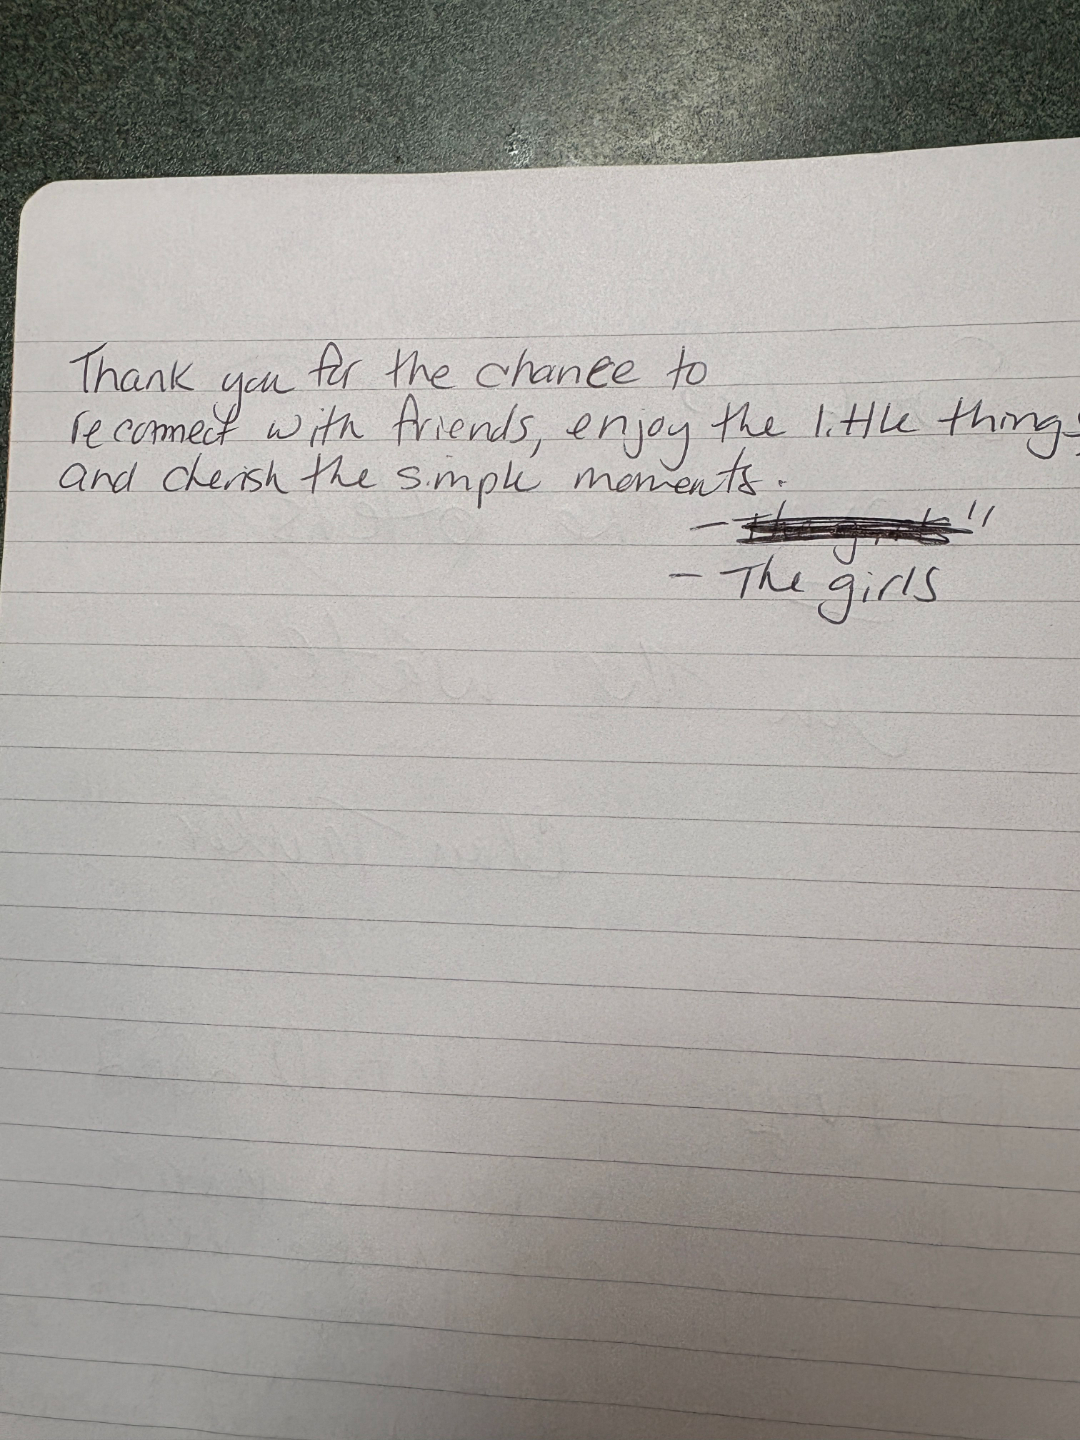 Thank you for the chance to
reconnect with friends, enjoy the little things,
and cherish the simple moments.
- The girls